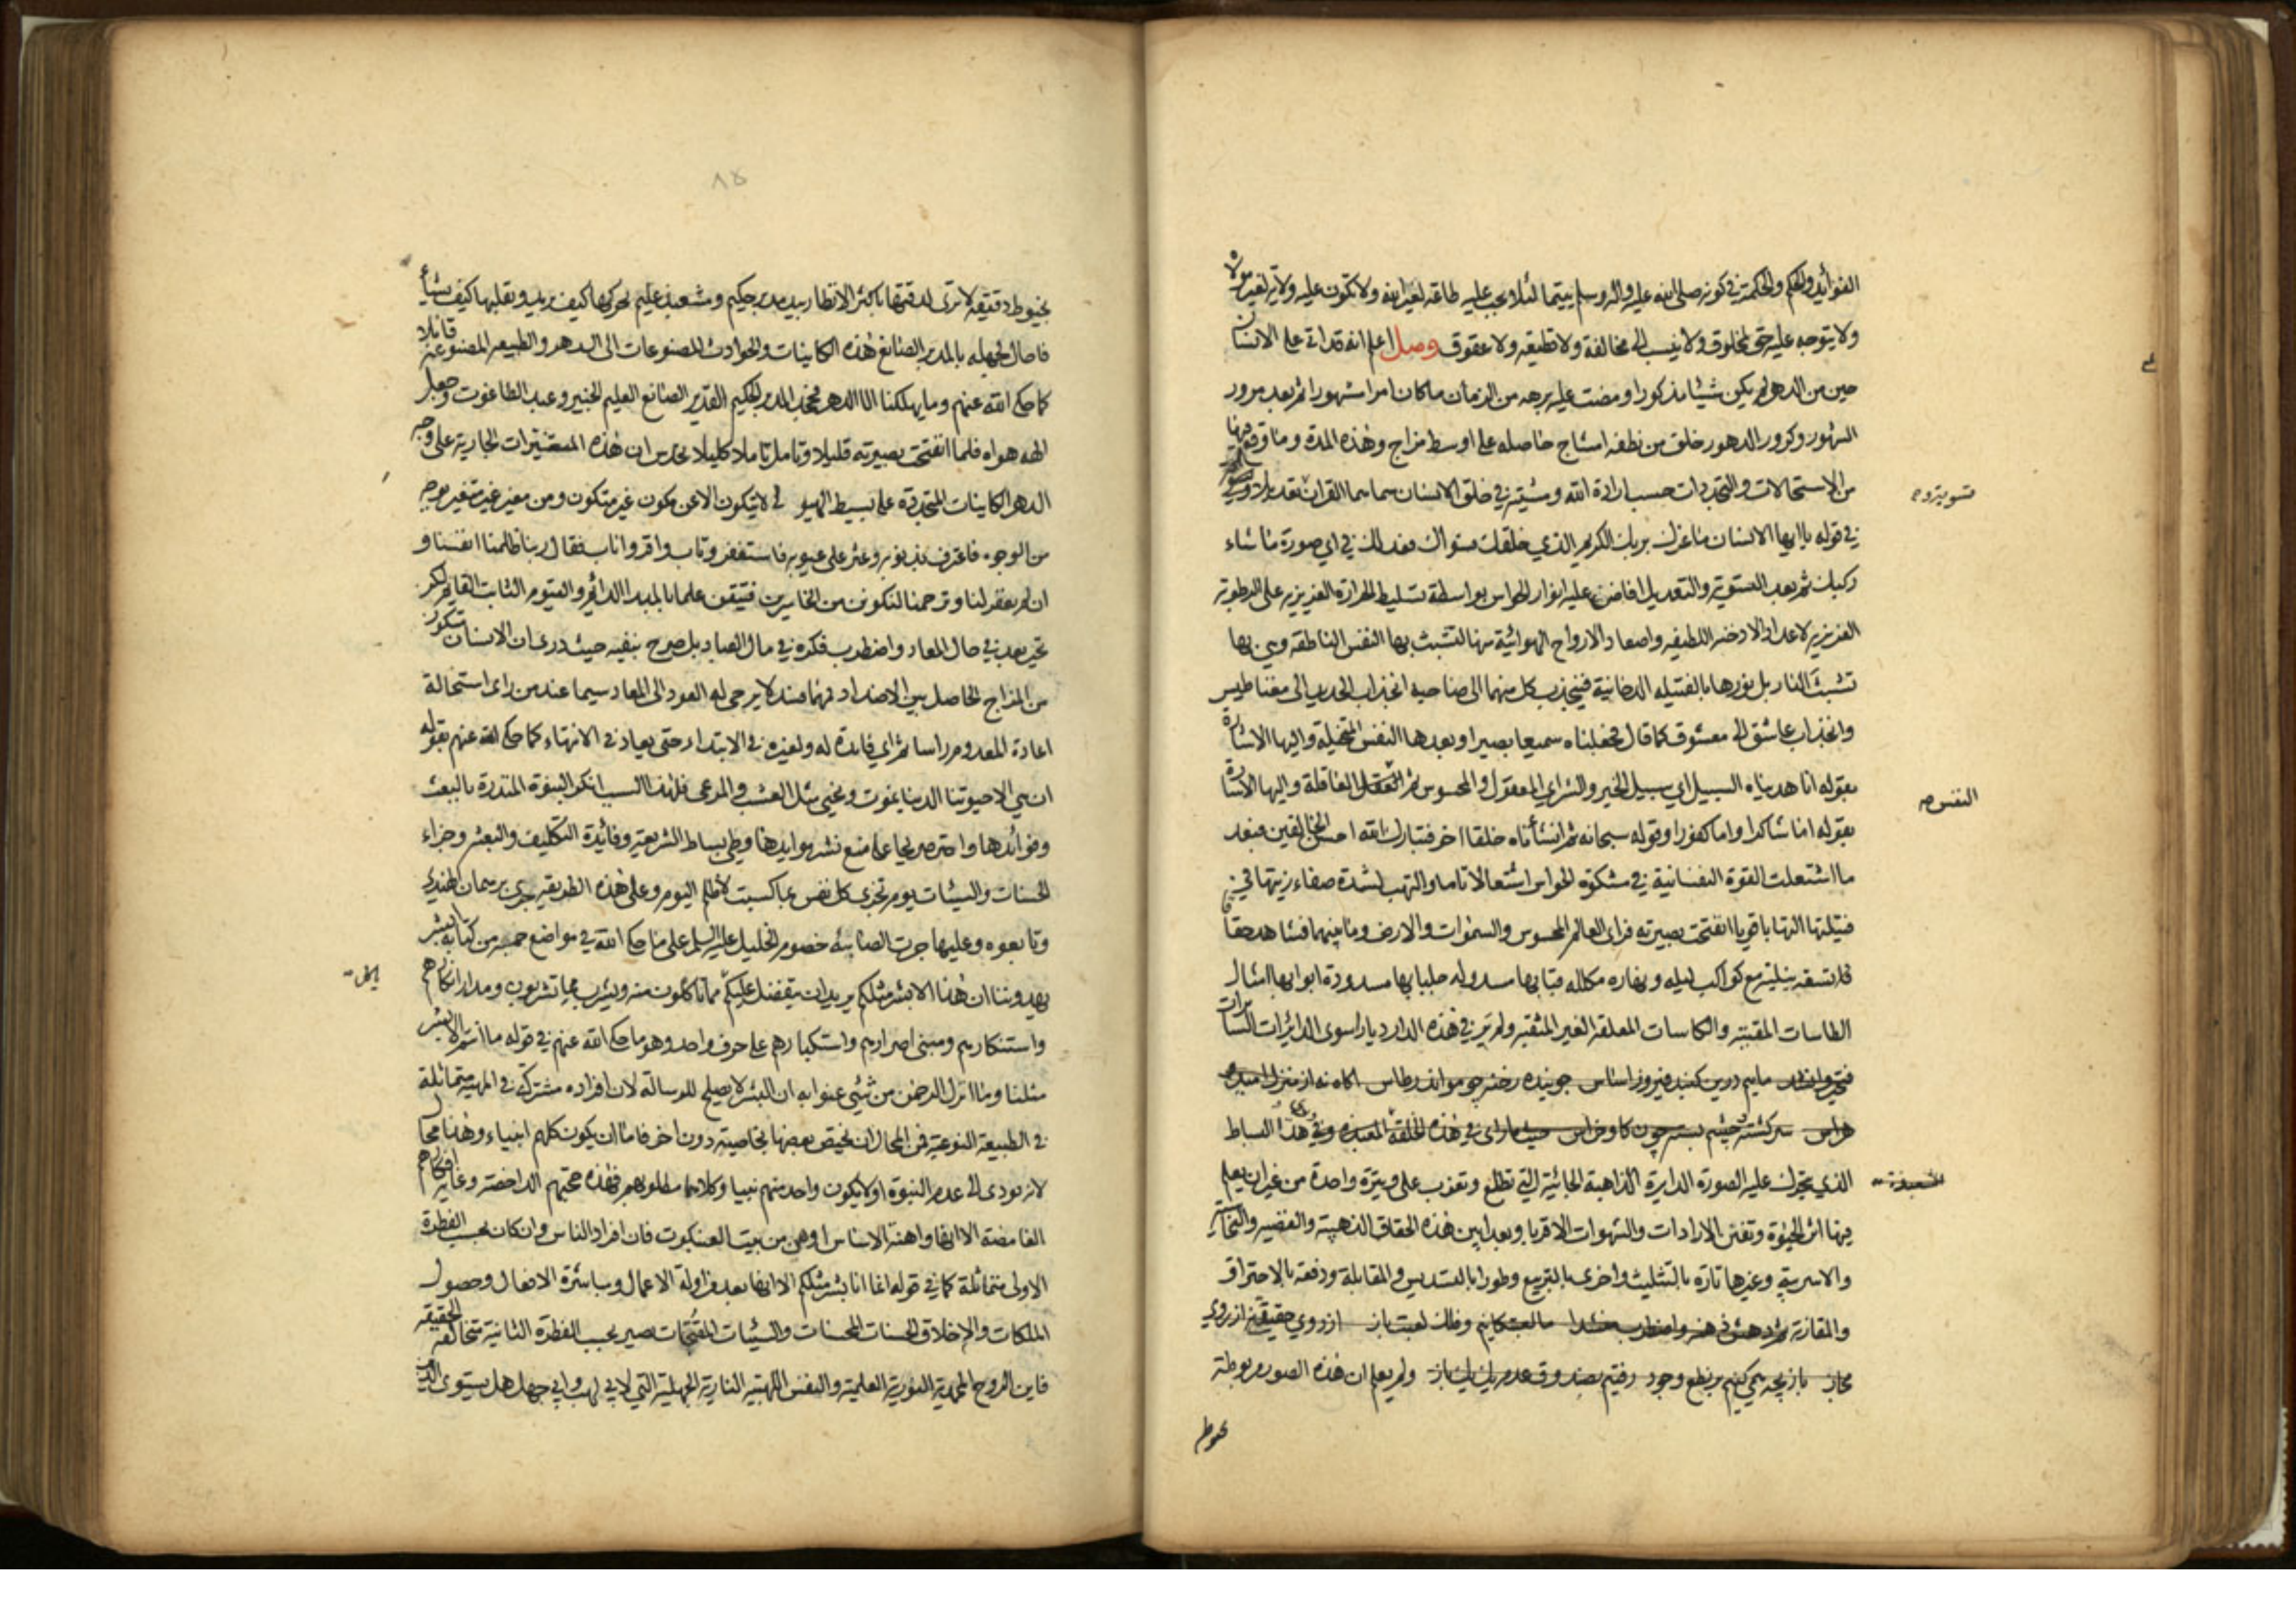 الفوائد والحكم والحكمة في كونه صلى الله عليه واله وسلم يتيما لئلا يجب عليه طاعة لغير الله ولا تكون عليه ولاية لغير مولاه
ولا يتوجه عليه حق لمخلوق ولا ينسب الى مخالفة ولا قطيعه ولا عقوق وصل اعلم انه قد اتى على الانسان
حين من الدهر لم يكن شيئا مذكورا ومضت عليه برهه من الزمان ما كان امرا مشهورا ثم بعد مرور
الشهور وكرور الدهور خلق من نطفه امشاج حاصله على اوسط مزاج وهذه المدة وما وقع فيها
من الاستحالات والتجددات حسب ارادة الله ومشيته في خلق الانسان سماها القران
تسويته
في قوله يا ايها الانسان ما غرك بربك الكريم الذي خلقك فسواك فعدلك في اي صورة ما شاء
ركبك ثم بعد التسوية والتعديل افاض عليه انوار الحواس بواسطة تسليط الحرارة الغريزيه على الرطوبة
الغريزيه لاعداد الادخنه اللطيفه واصعاد الارواح الهوائية منها لتشبث بها النفس الناطقه
تشبث النار بل نورها بالفتيله الدخانية فينجذب كل منهما الى صاحبه انجذاب الحديد الى مغناطيس
وانجذاب عاشق الى معشوق كما قال فجعلناه سميعا بصيرا وبعدها النفس المتخيلة واليها الاشارة
بقوله انا هديناه السبيل اي سبيل الخير والشر اي المعقول والمحسوس ثم العاقلة واليها الاشارة
النفس
بقوله اما شاكرا واما كفورا وقوله سبحانه ثم انشأناه خلقا اخر فتبارك الله احسن الخالقين فبعد
ما اشتعلت القوة النفسانية في مشكوة الحواس اشتعالا تاما والتهب لشدة صفاء زيتها في
فتيلتها التهابا قويا انفتحت بصيرته فراى العالم المحسوس والسموات والارض وما بينهما فشاهد حقا
مع كواكب ليله ونهاره مكلله قبابها مسدوله جلبابها مسدودة ابوابها امثال
الطاسات المقببه والكاسات المعلقه الغير المثقبه ولم ير في هذه الدار ديارا سوى الدائرات السائرات
فتحير وانشد مائيم درين كنبد فيروز اساس جوينده رخنه چو مور اندر طاس اكاه نه از منزل اميد و
هراس سركشته و چشم بسته چون كاو خراس حيث راى في هذه الخلقة وفي هذا البساط
الذي يتحرك عليه الصورة الدايرة الذاهبة الجائية التي تطلع وتغرب على وتيرة واحدة من غير ان يعلم
فيها اثر الحيوة وتفنن الارادات والشهوات الا قربا وبعدا بين هذه الحقاق الذهبية والفضيه والنحاسية
والاسربية وغيرها تارة بالتثليث واخرى بالتربيع وطورا بالتسديس والمقابلة ودفعه بالاحتراق
والمقارنة فدهش ذهنه واضطرب منشدا ما لعبتكانيم وفلك لعبت باز از روي حقيقتي نه از روي
مجاز بازيچه همي كنيم بر نطع وجود رفتيم بصندوق عدم يك يك باز ولم يعلم ان هذه الصور مربوطة
بخيوط
٨٥
بخيوط دقيقه لا ترى لدقتها باكثر الانظار بيد مدبر حكيم ومشعبذ عليم يحركها كيف يريد ويقلبها كيف يشأ
فاحال لجهله بالمدبر الصانع هذه الكاينات والحوادث المصنوعات الى الدهر والطبيعه المصنوعة قائلا
كما حكى الله عنهم وما يهلكنا الا الدهر فجحد المدبر الحكيم القدير الصانع العليم الخبير وعبد الطاغوت وجعل
الهه هواه فلما انفتحت بصيرته قليلا وتامل تاملا كليلا تحدس ان هذه المتغيرات الجارية على وجه
الدهر والكاينات المتجددة على بسيط الهيولى لا يتكون الا عن مكون غير متكون ومن مغير غير متغير بوجه
من الوجوه فاعترف بذنوبه وعثر على عيوبه فاستغفر وتاب واقر واناب فقال ربنا ظلمنا انفسنا و
ان لم يغفر لنا وترحمنا لنكونن من الخاسرين فتيقن علما بالمبدا الدائم والقيوم الثابت القايم لكن
تحير بعد في حال المعاد واضطرب فكره في مال العباد بل صرح بنفيه حيث درى ان الانسان يتكون
من المزاج الحاصل بين الاضداد فمهما فسد لا يرجى له العود الى المعاد سيما عند من راى استحالة
اعادة المعدوم راسا ثم اي فايدة له ولغيره في الابتداء حتى يعاد في الانتهاء كما حكى الله عنهم بقوله
ان هي الا حيوتنا الدنيا نموت ونحيى مثل العشب والمرعى فلهذا السبب انكر النبوة المنذرة بالبعث
وفوائدها واحترص على منع نشر موايدها وطي بساط الشريعة وفائدة التكليف والبعث وجزاء
الحسنات والسيئات يوم تجزى كل نفس بما كسبت لا ظلم اليوم وعلى هذه الطريقه جرى برسمان الهندي
وتابعوه وعليها جرت الصابئه خصوم الخليل عليه السلم على ما حكى الله في مواضع جمه من كتابه ابشر
يهدوننا ان هذا الا بشر مثلكم يريد ان يتفضل عليكم مما تاكلون منه ويشرب مما تشربون ومدار انكارهم
واستنكارهم ومبنى اصرارهم واستكبارهم على حرف واحد وهو ما حكى الله عنهم في قوله ما انتم الا بشر
مثلنا وما انزل الرحمن من شيئ عنوا به ان البشر لا يصلح للرسالة لان افراده مشتركة في المهية متماثلة
في الطبيعة النوعية فمن المحال ان يختص بعضها بخاصية دون اخر فاما ان يكون كلهم انبياء وهذا محال
لانه يودى الى عدم النبوة او لا يكون واحد منهم نبيا وكلاهما مطلوبهم فهذه حجتهم الداحضة وغاية افكارهم
الغامضة الا انها واهنة الاساس اوهن من بيت العنكبوت فان افراد الناس وان كان بحسب الفطرة
الاولى متماثلة كما في قوله انما انا بشر مثلكم الا انها بعد مزاولة الاعمال ومباشرة الافعال وحصول
الملكات والاخلاق الحسنات المحسنات والسيئات المقبحات تصير بحسب الفطرة الثانية متخالفة الحقيقه
فاين الروح المحمدية النورية العلمية والنفس اللهبية النارية الجهلية التي لابي لهب وابي جهل هل يستوى الذين